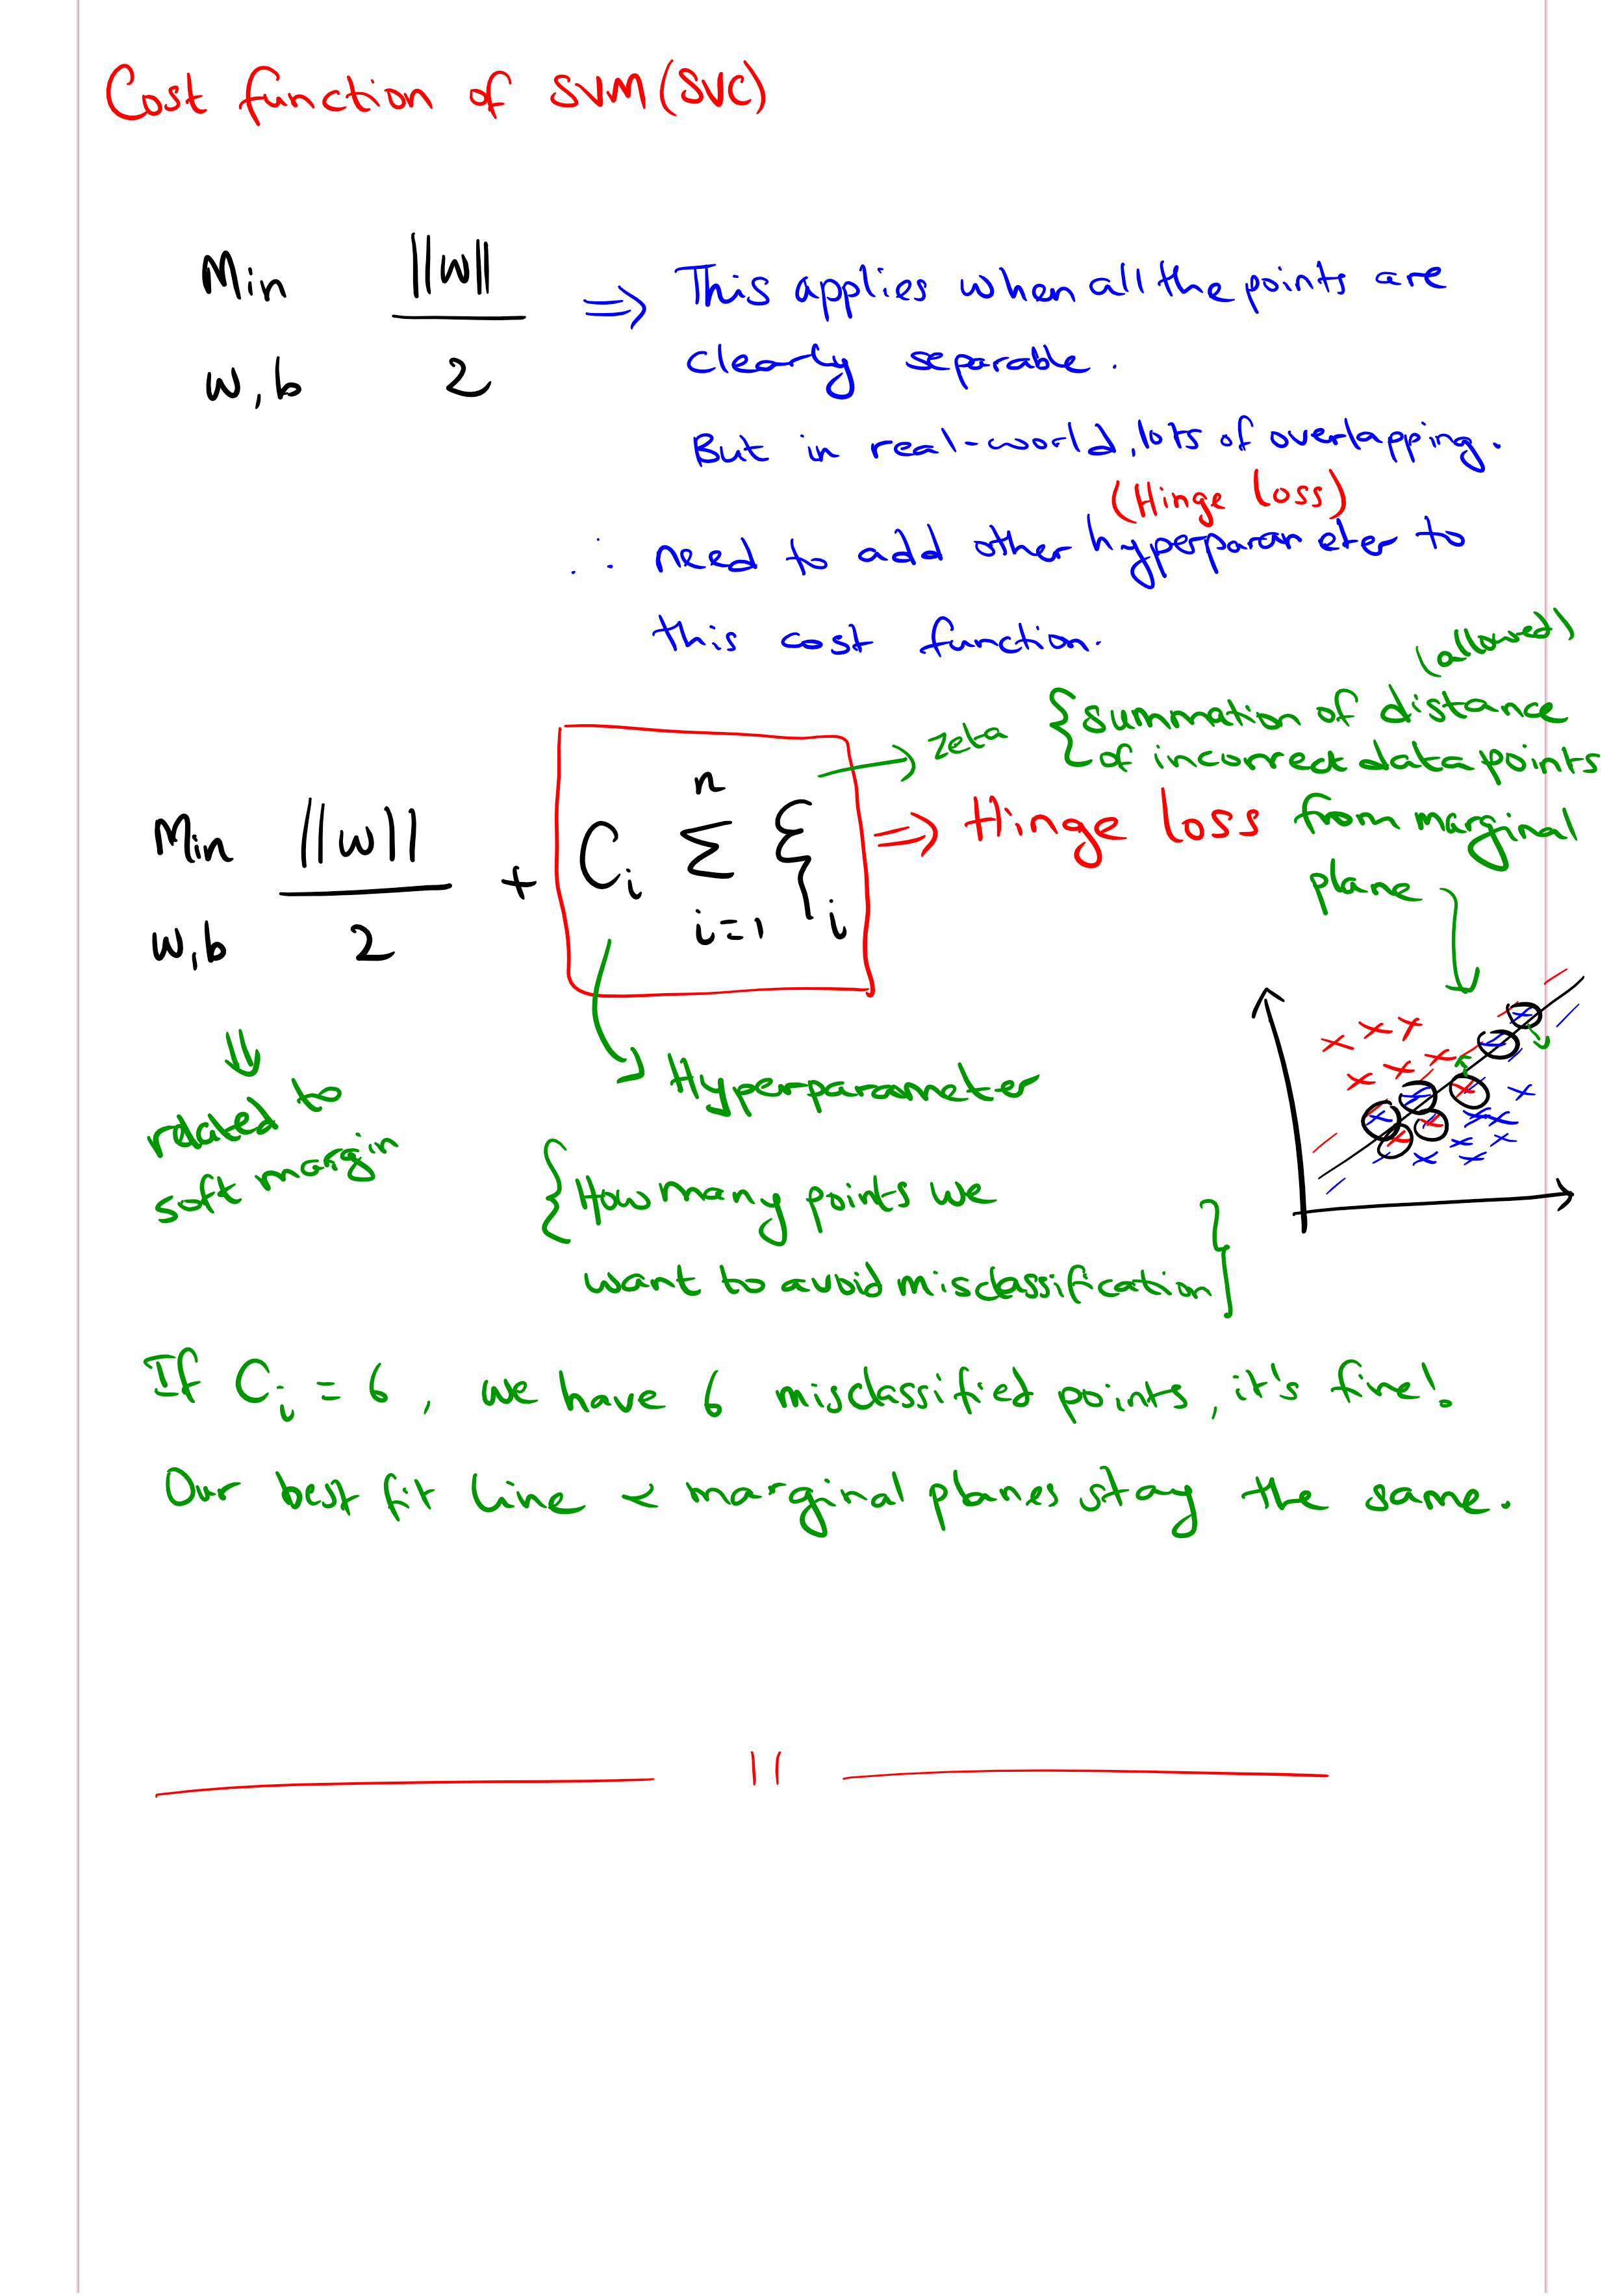 Cost function of SVM(SVC)
Min ||w||
w,b 2
⇒ This applies when all the points are
clearly separable.
But in real-world, lots of overlapping.
(Hinge loss)
∴ need to add other hyperparameter to
this cost function.
(allowed)
→ zeta {summation of distance
of incorrect data points
Min ||w|| + C_i n Σ i=1 ξ_i ⇒ Hinge loss from marginal
w,b 2
plane
⇓
related to
soft margin
→ Hyperparameter
{How many points we
want to avoid misclassification}
If C_i = 6, we have 6 misclassified points, it's fine!
Our best fit line < marginal planes stay the same.